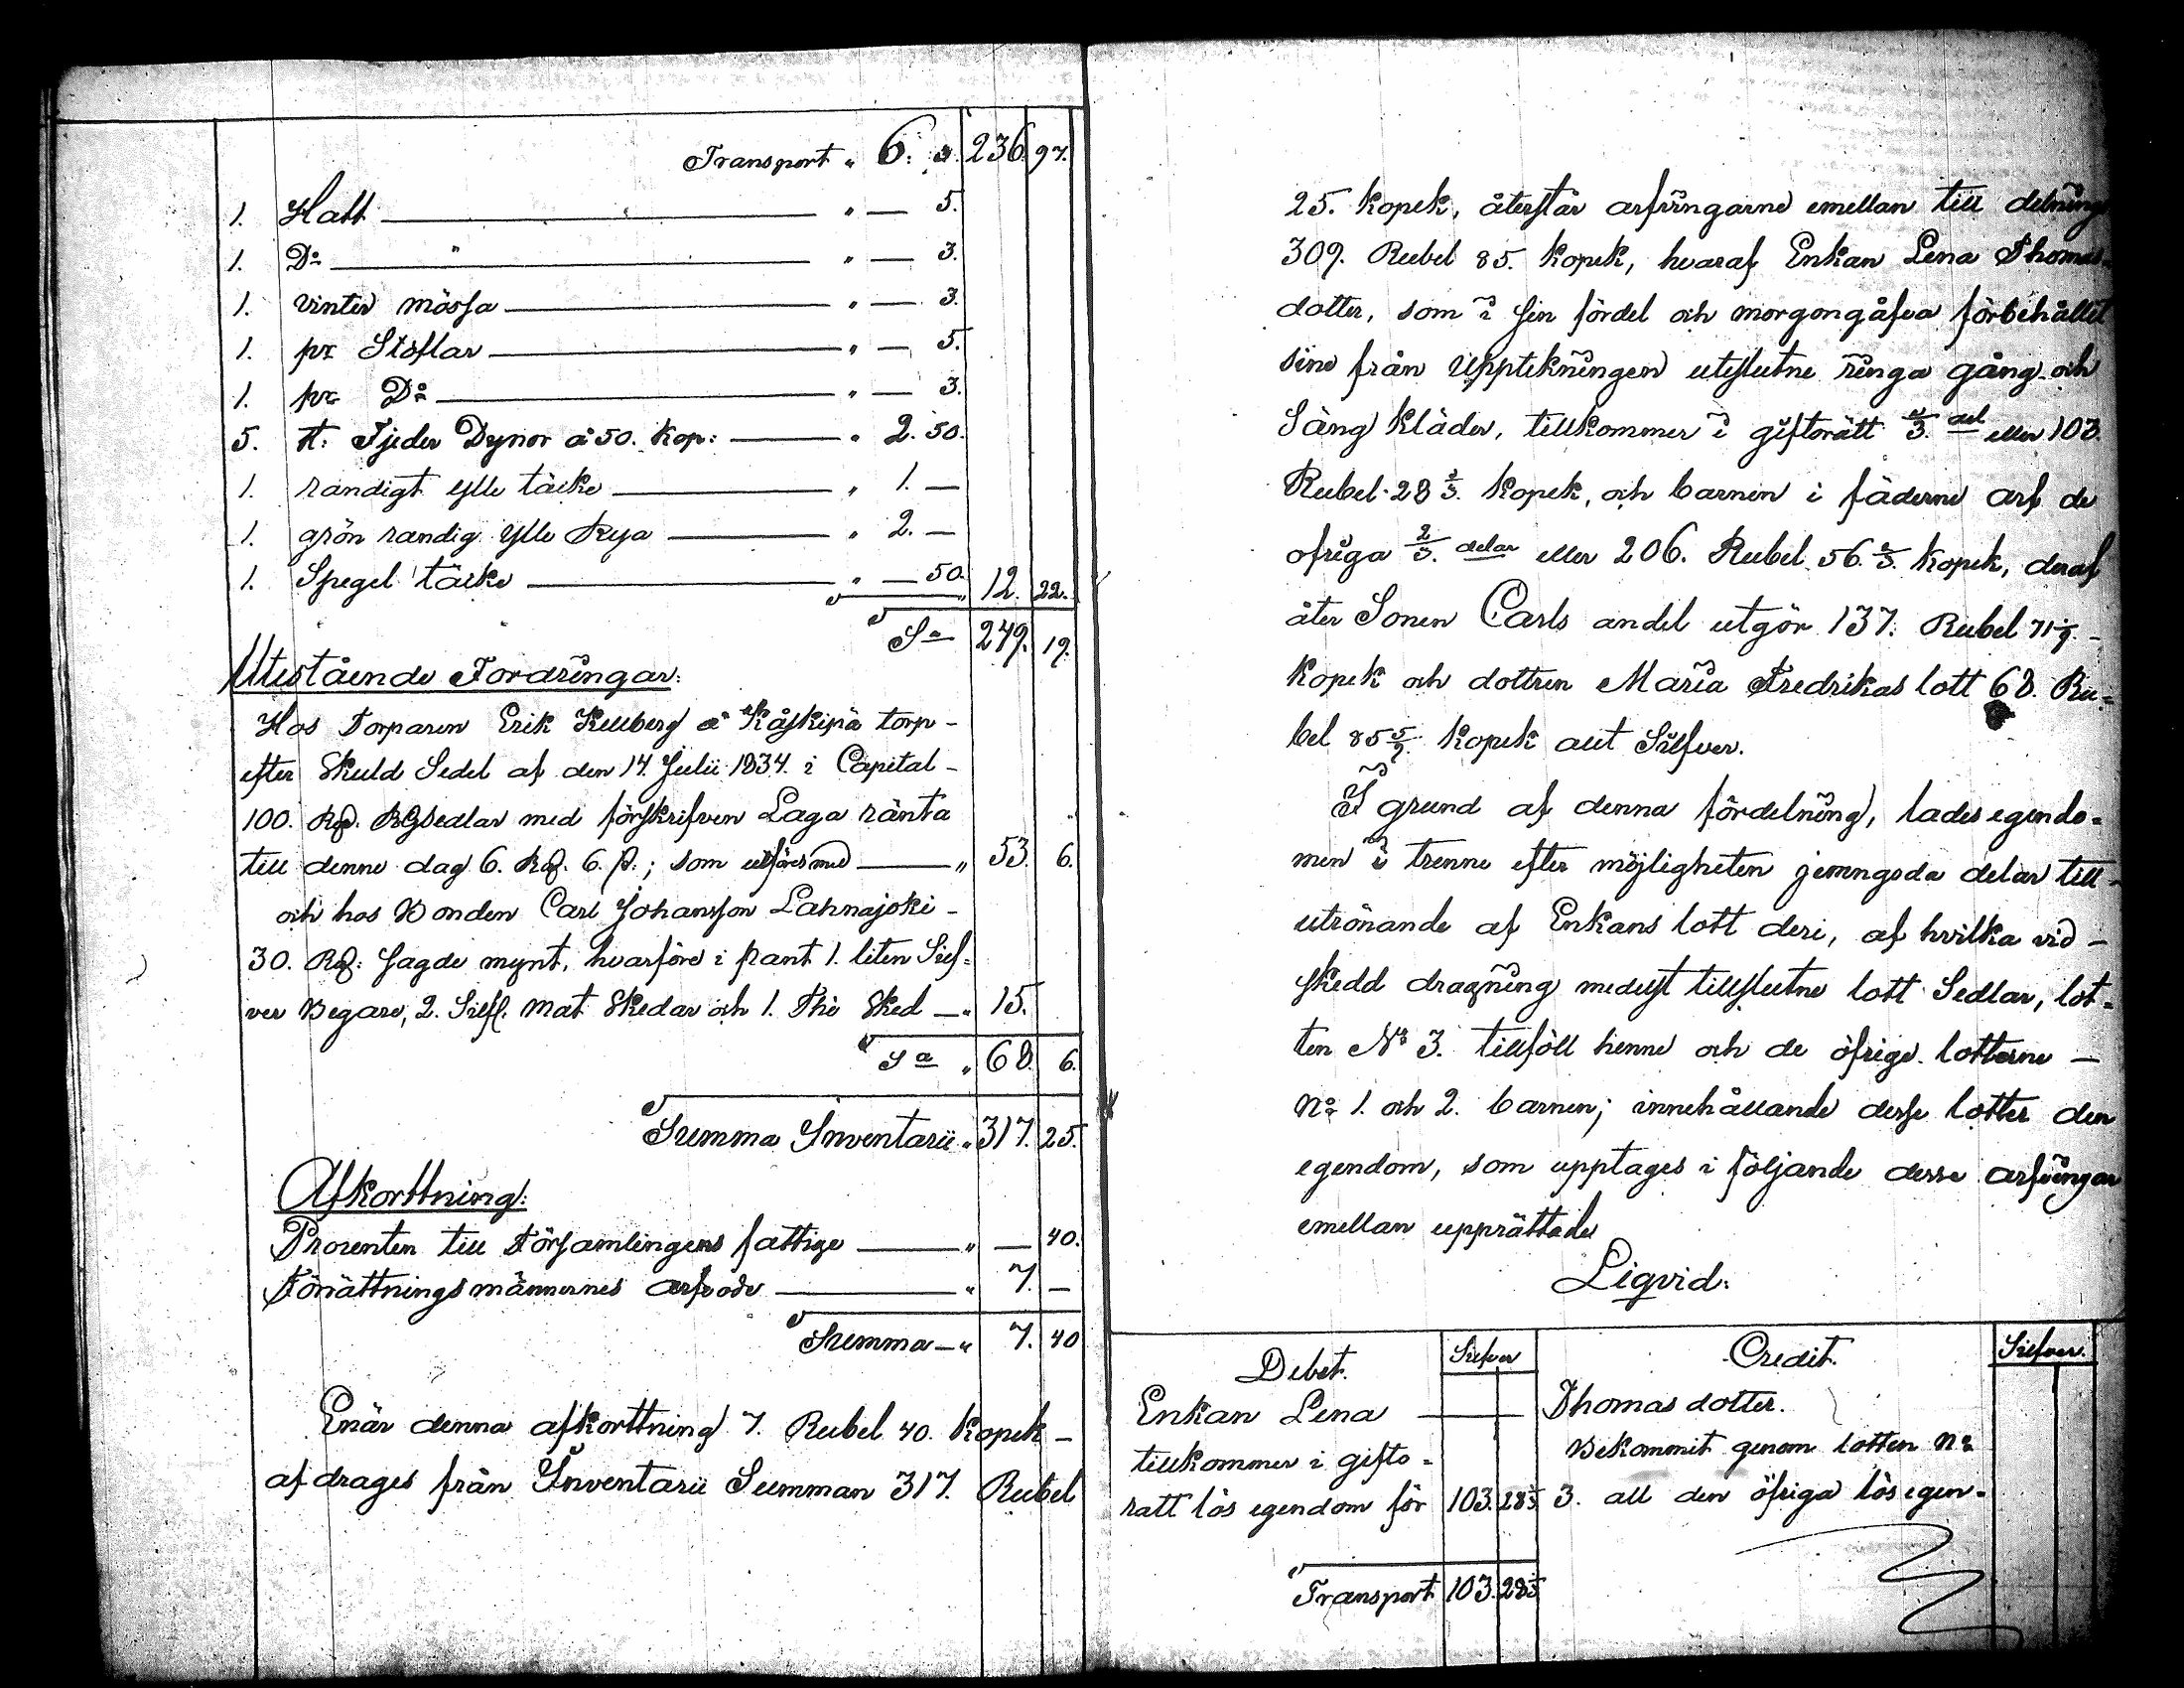 Transport " 6. 3. 236. 97.
1. Hatt — " — 5.
1. Do " — " — 3.
1. vinter mössa — " — 3.
1. pr Stöflar — " — 5.
1. pr Do — " — 3.
5. st: Fjeder Dynor à 50. Kop: — " 2. 50.
1. randigt ylle täcke — " 1. —
1. grön randig ylle Rya — " 2. —
1. Spegel täcke — " — 50. 12. 22.
Sa 249. 19.
Utestående Fordringar:
Hos Torparen Erik Kullberg å Kåskipä torp –
efter Skuld Sedel af den 14. Julii 1834. i Capital –
100. Rd. RGSedlar med förskrifven Laga ränta
till denne dag 6. Rd. 6. s.; som utföres med — " 53. 6.
och hos Bonden Carl Johansson Lahnajoki –
30. Rd: sagde mynt, hvarföre i pant 1. liten Silf=
ver Begare, 2. Silf. mat Skedar och 1. The Sked — " 15.
Sa " 68. 6.
Summa Inventarii " 317. 25.
Afkorttning:
Prosenten till Församlingens fattige — " — 40.
Förrättningsmännernes arfvode — " 7. —
Summa — " 7. 40
Enär denna afkorttning 7. Rubel 40. Kopek –
afdrages från Inventarii Summan 317. Rubel
25. Kopek, återstår arfvingarne emellan till delning
309. Rubel 85. Kopek, hvaraf Enkan Lena Thomas=
dotter, som i sin fördel och morgongåfva förbehållit
sine från Uppteckningen uteslutne ringa gång- och
Säng kläder, tillkommer i giftorätt 1/3. del eller 103.
Rubel 28 1/3. Kopek, och barnen i fäderne arf de
ofriga 2/3. delar eller 206. Rubel 56. 2/3. Kopek, deraf
åter Sonen Carls andel utgör 137. Rubel 71 1/9. –
Kopek och dottren Maria Fredrikas lott 68. Ru=
bel 85 5/9. Kopek allt Silfver.
I grund af denna fördelning, lades egendo=
men i trenne efter möjligheten jemngoda delar till –
utrönande af Enkans lott deri, af hvilka vid –
skedd dragning medelst tillslutne lott Sedlar, lot=
ten No 3. tillföll henne och de öfrige lotterne —
No 1. och 2. barnen; innehållande desse lotter den
egendom, som upptages i följande desse arfvingar
emellan upprättade
Liqvid:
Debet. Silfver Credit. Silfver.
Enkan Lena — Thomas dotter.
tillkommer i gifto= Bekommit genom lotten No
ratt lös egendom för 103. 28 1/3 3. all den öfriga lös egen=
Transport 103. 28 1/3